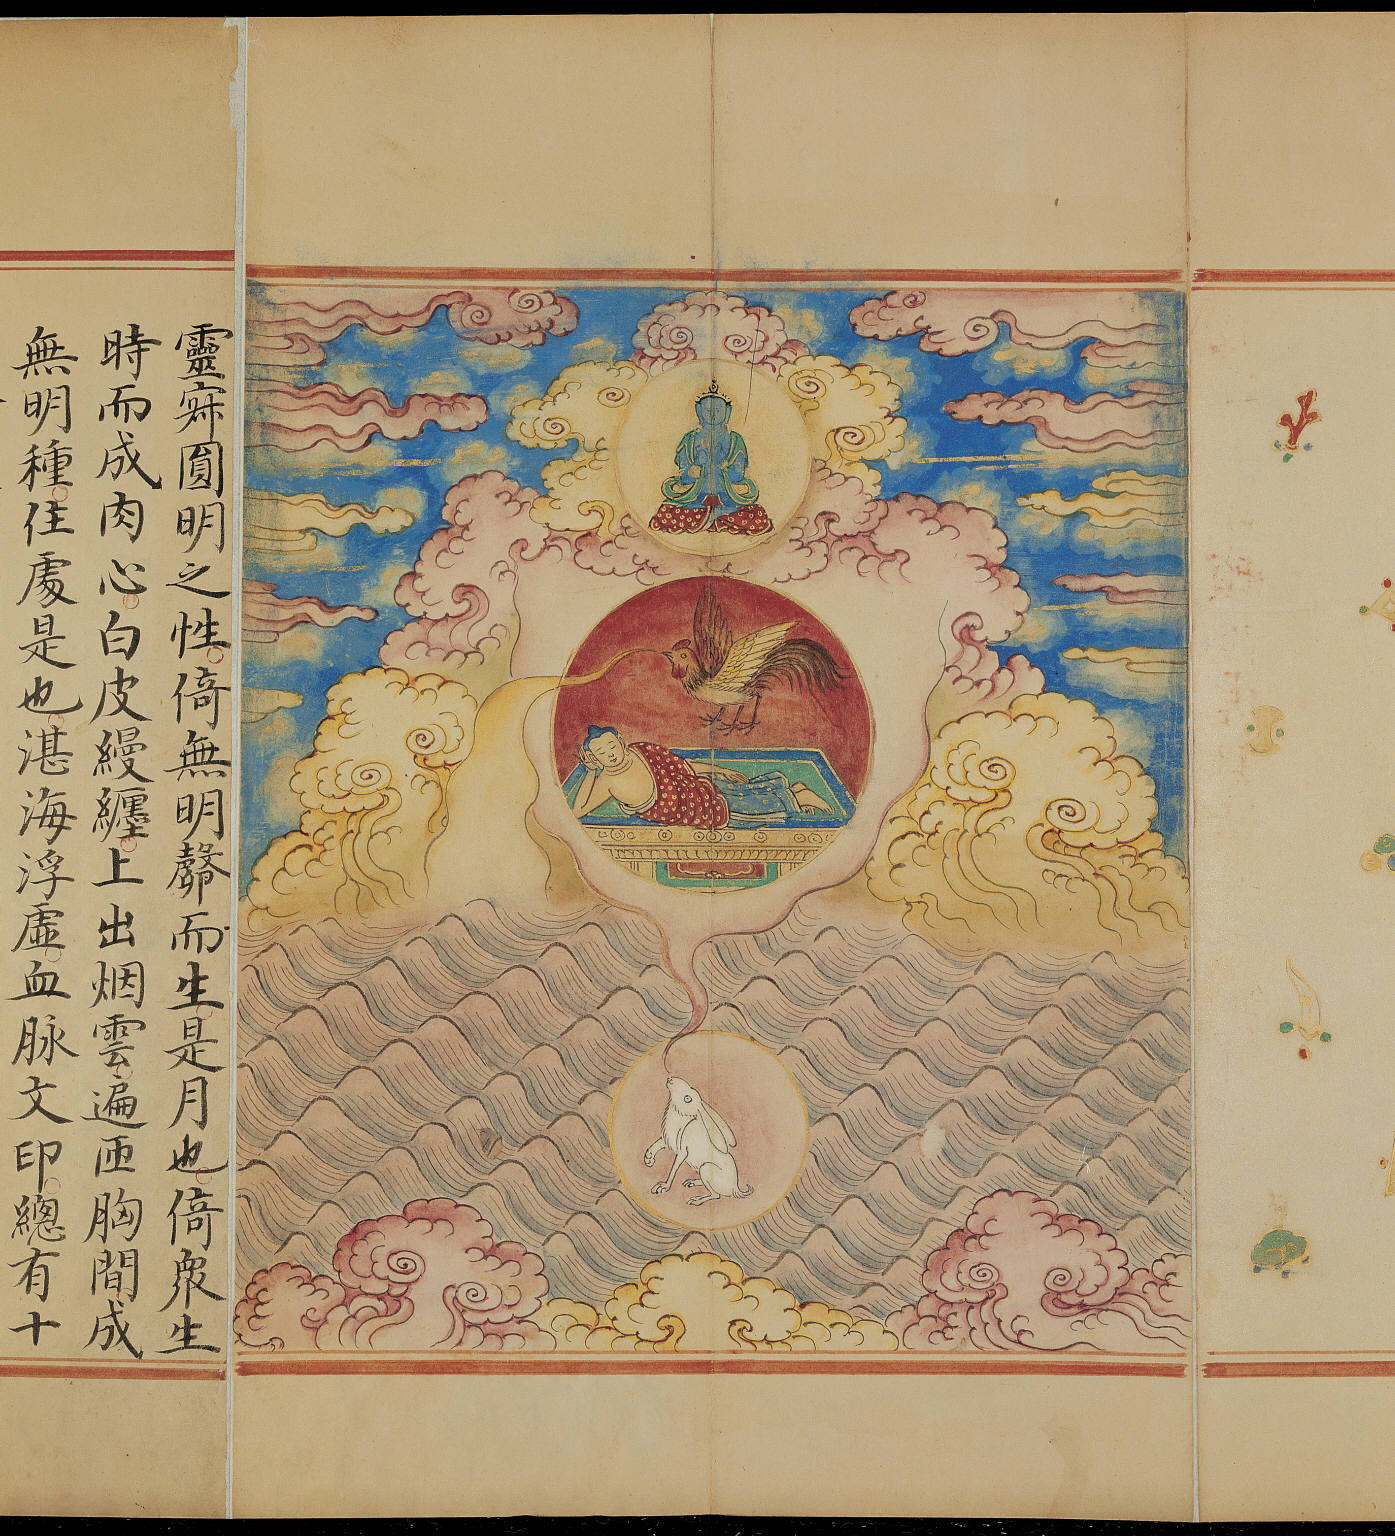 靈寂圓明之性倚無明聲而生是月也倚衆生
時而成肉心白皮縵纏上出烟雲遍匝胸間成
無明種住處是也湛海浮虛血脉文印總有十